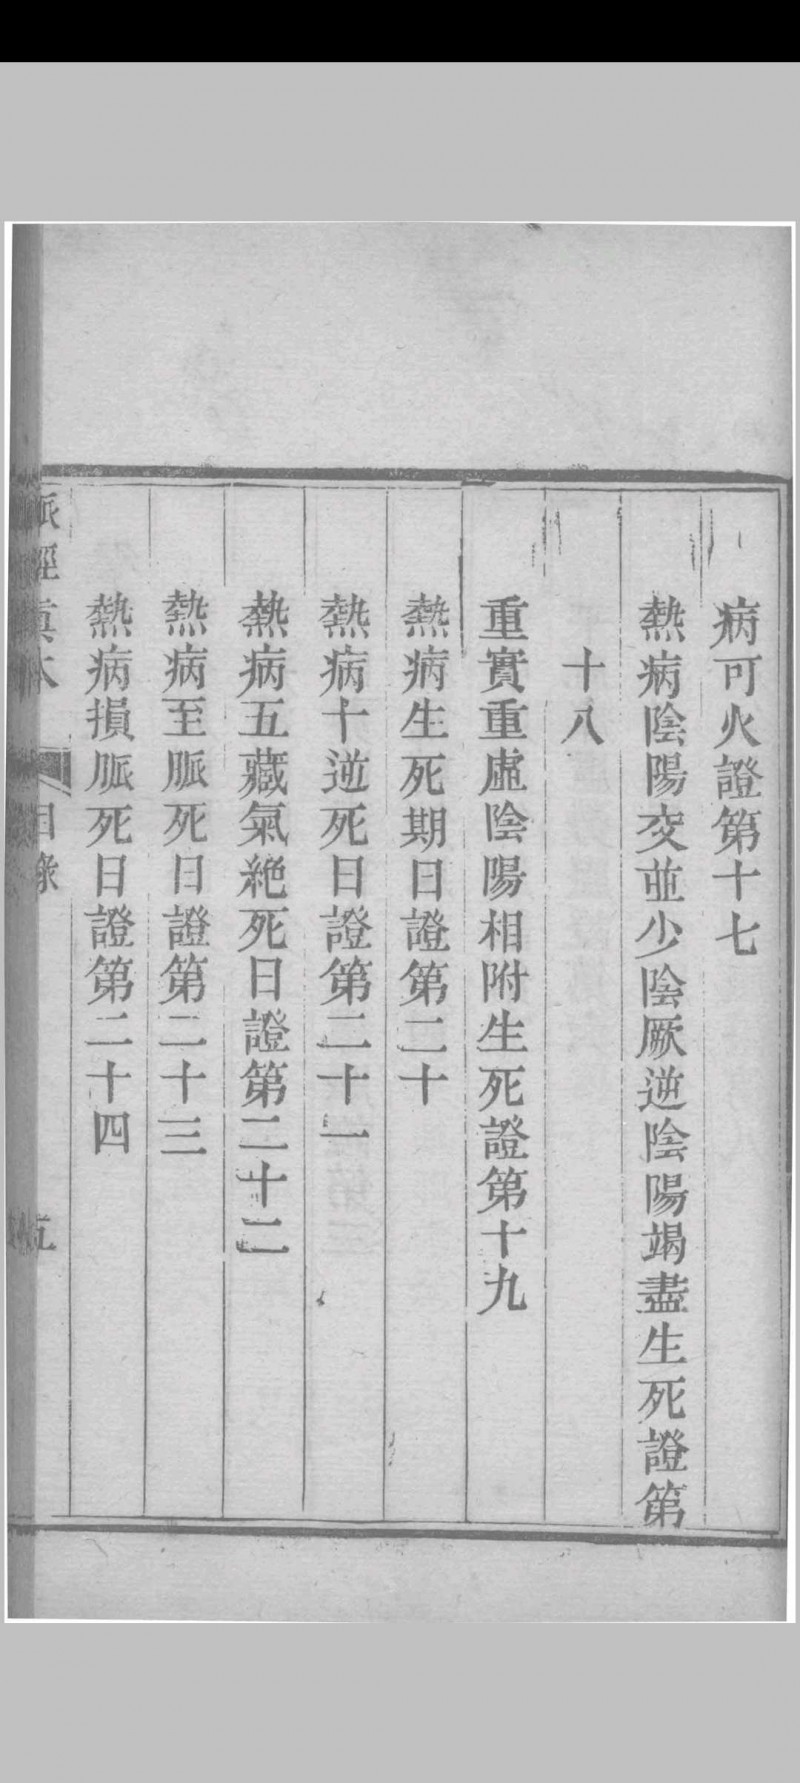 病可火證第十七
熱病陰陽交並少陰厥逆陰陽竭盡生死證第
十八
重實重虛陰陽相附生死證第十九
熱病生死期日證第二十
熱病十逆死日證第二十一
熱病五藏氣絶死日證第二十二
熱病至脈死日證第二十三
熱病損脈死日證第二十四
脈經真本 目錄 五